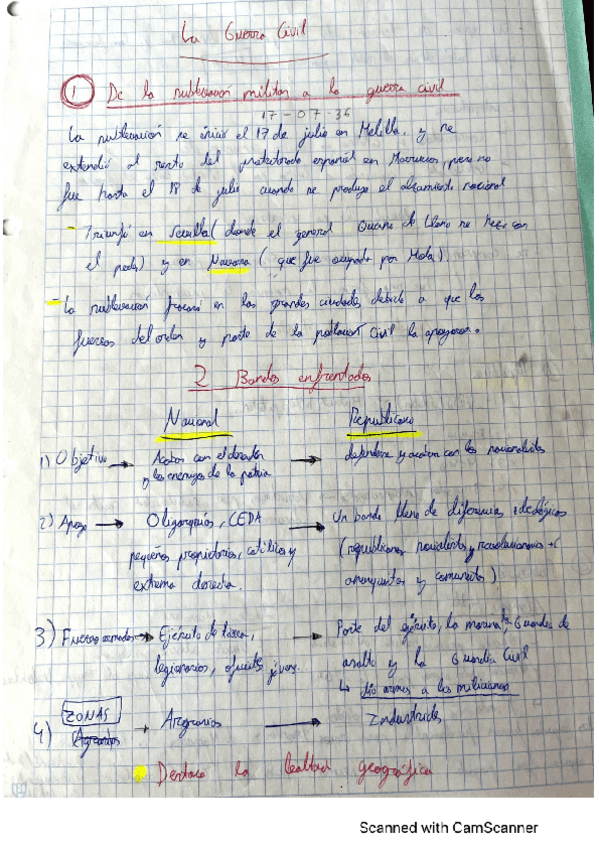 La Guerra Civil
1 De la sublevación militar a la guerra civil
17-07-36
La sublevación se inició el 17 de julio en Melilla, y se
extendió al resto del protectorado español en Marruecos, pero no
fue hasta el 18 de julio cuando se produje el alzamiento nacional
- Triunfó en Sevilla (donde el general Queipo de Llano se hizo con
el poder) y en Navarra (que fue ocupada por Mola).
- La sublevación fracasó en las grandes ciudades debido a que las
fuerzas del orden y parte de la población civil la apoyaron.
2 Bandos enfrentados
Nacional Republicano
1) Objetivo → Acabar con el → defenderse y acabar con los
y los enemigos de la patria
2) Apoyo → Oligarquías, CEDA → Un bando lleno de diferencias ideológicas
pequeños propietarios, católicos y (republicanos y revolucionarios +
extrema derecha. anarquistas y comunistas)
3) Fuerzas armadas → Ejército de tierra, → Parte del ejército, la marina, Guardia de
legionarios, jóvenes. asalto y la Guardia Civil
↳ Dio armas a los milicianos
ZONAS
4) Agrarios → Agrarios → Industriales
Destaca la lealtad geográfica
Scanned with CamScanner